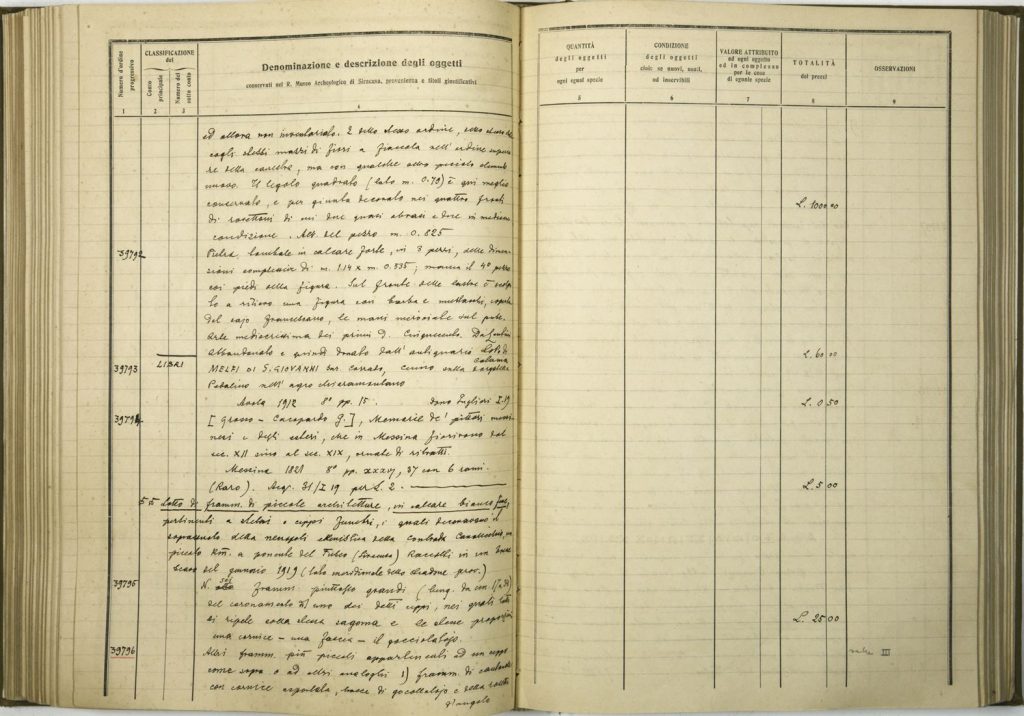 Numero d'ordine progressivo
CLASSIFICAZIONE del
Conto principale
Numero del sotto conto
Denominazione e descrizione degli oggetti
conservati nel R. Museo Archeologico di Siracusa, provenienza e titoli giustificativi
1 2 3 4
ed allora non inventariato. E dello stesso ordine,
cogli stessi mazzi di fiori a fiaccola nell'ordine superio
re della canestra, ma con qualche altro piccolo elemento
nuovo. Il legolo quadrato (lato m. 0.79) è qui meglio
conservato, e per giunta decorato nei quattro fronti
di rosettoni di cui due quasi abrasi e due in mediocre
condizione. Alt. del pezzo m. 0.825
39792 Pietra tombale in calcare forte, in 3 pezzi, delle dimen
sioni complessive di m. 1.14 x m. 0.535; manca il 4° pezzo
coi piedi della figura. Sul fronte della lastra è scolpi
to a rilievo una figura con barba e mustacchi, coperta
del sajo francescano, le mani incrociate sul pube.
Arte mediocrissima dei primi d. Cinquecento. Da Lentini
Abbandonato e quindi donato dall'antiquario
39793 LIBRI MELFI DI S. GIOVANNI bar. Corrado, Cenno sulla
nell'agro chiaramontano
Avola 1912 8° pp. 15. dono Pugliesi I.19
39794 [Grosso-Cacopardo G.], Memorie de' pittori messi
nesi e degli esteri, che in Messina fiorirono dal
sec. XII sino al sec. XIX, ornate di ritratti.
Messina 1821 8° pp. xxxvj, 37 con 6 rami.
(Raro). Acq. 31/I 19 per L. 2.
Lotto di framm. di piccole architetture, in calcare bianco
pertinenti a stelai e cippi funebri, i quali decoravano il
soprasuolo della necropoli ellenistica della contrada Canalicchio, un
piccolo Km. a ponente del Fusco (Siracusa) Raccolti in uno
scavo del gennaio 1919 (lato meridionale dello stradone prov.)
39795 N. framm. piuttosto grandi (lung. da cm
del coronamento di uno dei detti cippi, nei quali tutti
si ripete colla stessa sagoma e le stesse proporzioni
una cornice – una fascia – il gocciolatojo.
39796 Altri framm. più piccoli appartenenti ad un cippo
come sopra o ad altri analoghi 1) framm. di
con cornice asportata, tracce di gocciolatojo e della
d'angolo
QUANTITÀ degli oggetti per ogni egual specie
CONDIZIONE degli oggetti cioè: se nuovi, usati, od inservibili
VALORE ATTRIBUITO ad ogni oggetto od in complesso per le cose di eguale specie
TOTALITÀ dei prezzi
OSSERVAZIONI
5 6 7 8 9
L. 1000.00
L. 60.00
L. 0 50
L. 5 00
L. 25 00
III